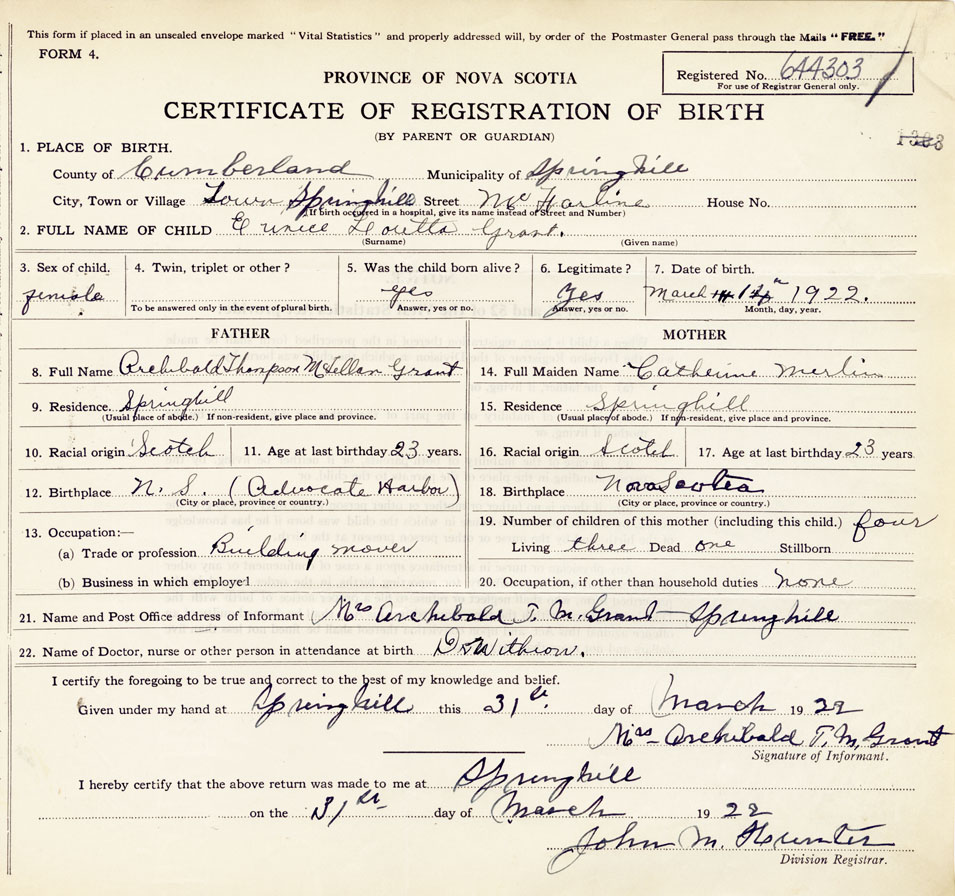 This form if placed in an unsealed envelope marked "Vital Statistics" and properly addressed will, by order of the Postmaster General pass through the Mails "FREE."
FORM 4.
Registered No. 644303
For use of Registrar General only.
PROVINCE OF NOVA SCOTIA
CERTIFICATE OF REGISTRATION OF BIRTH
(BY PARENT OR GUARDIAN)
1303
1. PLACE OF BIRTH.
County of Cumberland Municipality of Springhill
City, Town or Village Town Springhill Street Mc Farline House No.
(If birth occurred in a hospital, give its name instead of Street and Number)
2. FULL NAME OF CHILD Eunice Loutta Grant.
(Surname) (Given name)
3. Sex of child. 4. Twin, triplet or other? 5. Was the child born alive? 6. Legitimate? 7. Date of birth.
female yes Yes March 14th 1922.
To be answered only in the event of plural birth. Answer, yes or no. Answer, yes or no. Month, day, year.
FATHER MOTHER
8. Full Name Archibald Thompson McLellan Grant 14. Full Maiden Name Catherine Merlin
9. Residence. Springhill 15. Residence Springhill
(Usual place of abode.) If non-resident, give place and province. (Usual place of abode.) If non-resident, give place and province.
10. Racial origin Scotch 11. Age at last birthday 23 years. 16. Racial origin Scotch 17. Age at last birthday 23 years.
12. Birthplace N. S. (Advocate Harbor) 18. Birthplace Nova Scotia
(City or place, province or country.) (City or place, province or country.)
13. Occupation:— 19. Number of children of this mother (including this child.) four
(a) Trade or profession Building mover Living three Dead one Stillborn
(b) Business in which employed 20. Occupation, if other than household duties none
21. Name and Post Office address of Informant Mrs Archibald T. M. Grant Springhill
22. Name of Doctor, nurse or other person in attendance at birth Dr Withrow.
I certify the foregoing to be true and correct to the best of my knowledge and belief.
Given under my hand at Springhill this 31st. day of March 1922
Mrs Archibald T. M. Grant
Signature of Informant.
I hereby certify that the above return was made to me at Springhill
on the 31st day of March 1922
John M. Hunter
Division Registrar.